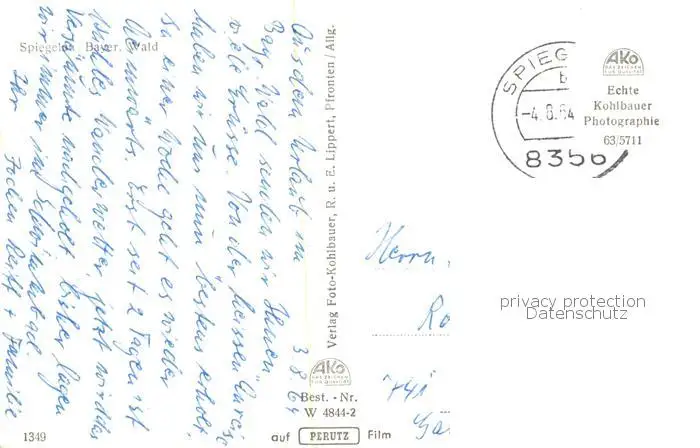 Spiegelau Bayer. Wald
Aus dem Urlaub im
Bayr. Wald senden wir Ihnen
viele Grüsse. Von der heissen
haben wir uns nun bestens erholt.
In einer Woche geht es wieder
heimwärts. Erst seit 2 Tagen ist
Wanderwetter, jetzt wird
nachgeholt, bisher lagen
wir immer im Schwimmbad.
Ihr
Jochen + Familie
3.8.64
Verlag Foto-Kohlbauer, R. u. E. Lippert, Pfronten/Allg.
1349
AKO
DAS ZEICHEN
FÜR QUALITÄT
Best. - Nr.
W 4844-2
auf PERUTZ Film
SPIEG
b
-4.8.64
8356
AKO
DAS ZEICHEN
FÜR QUALITÄT
Echte
Kohlbauer
Photographie
63/5711
Herrn
privacy protection
Datenschutz